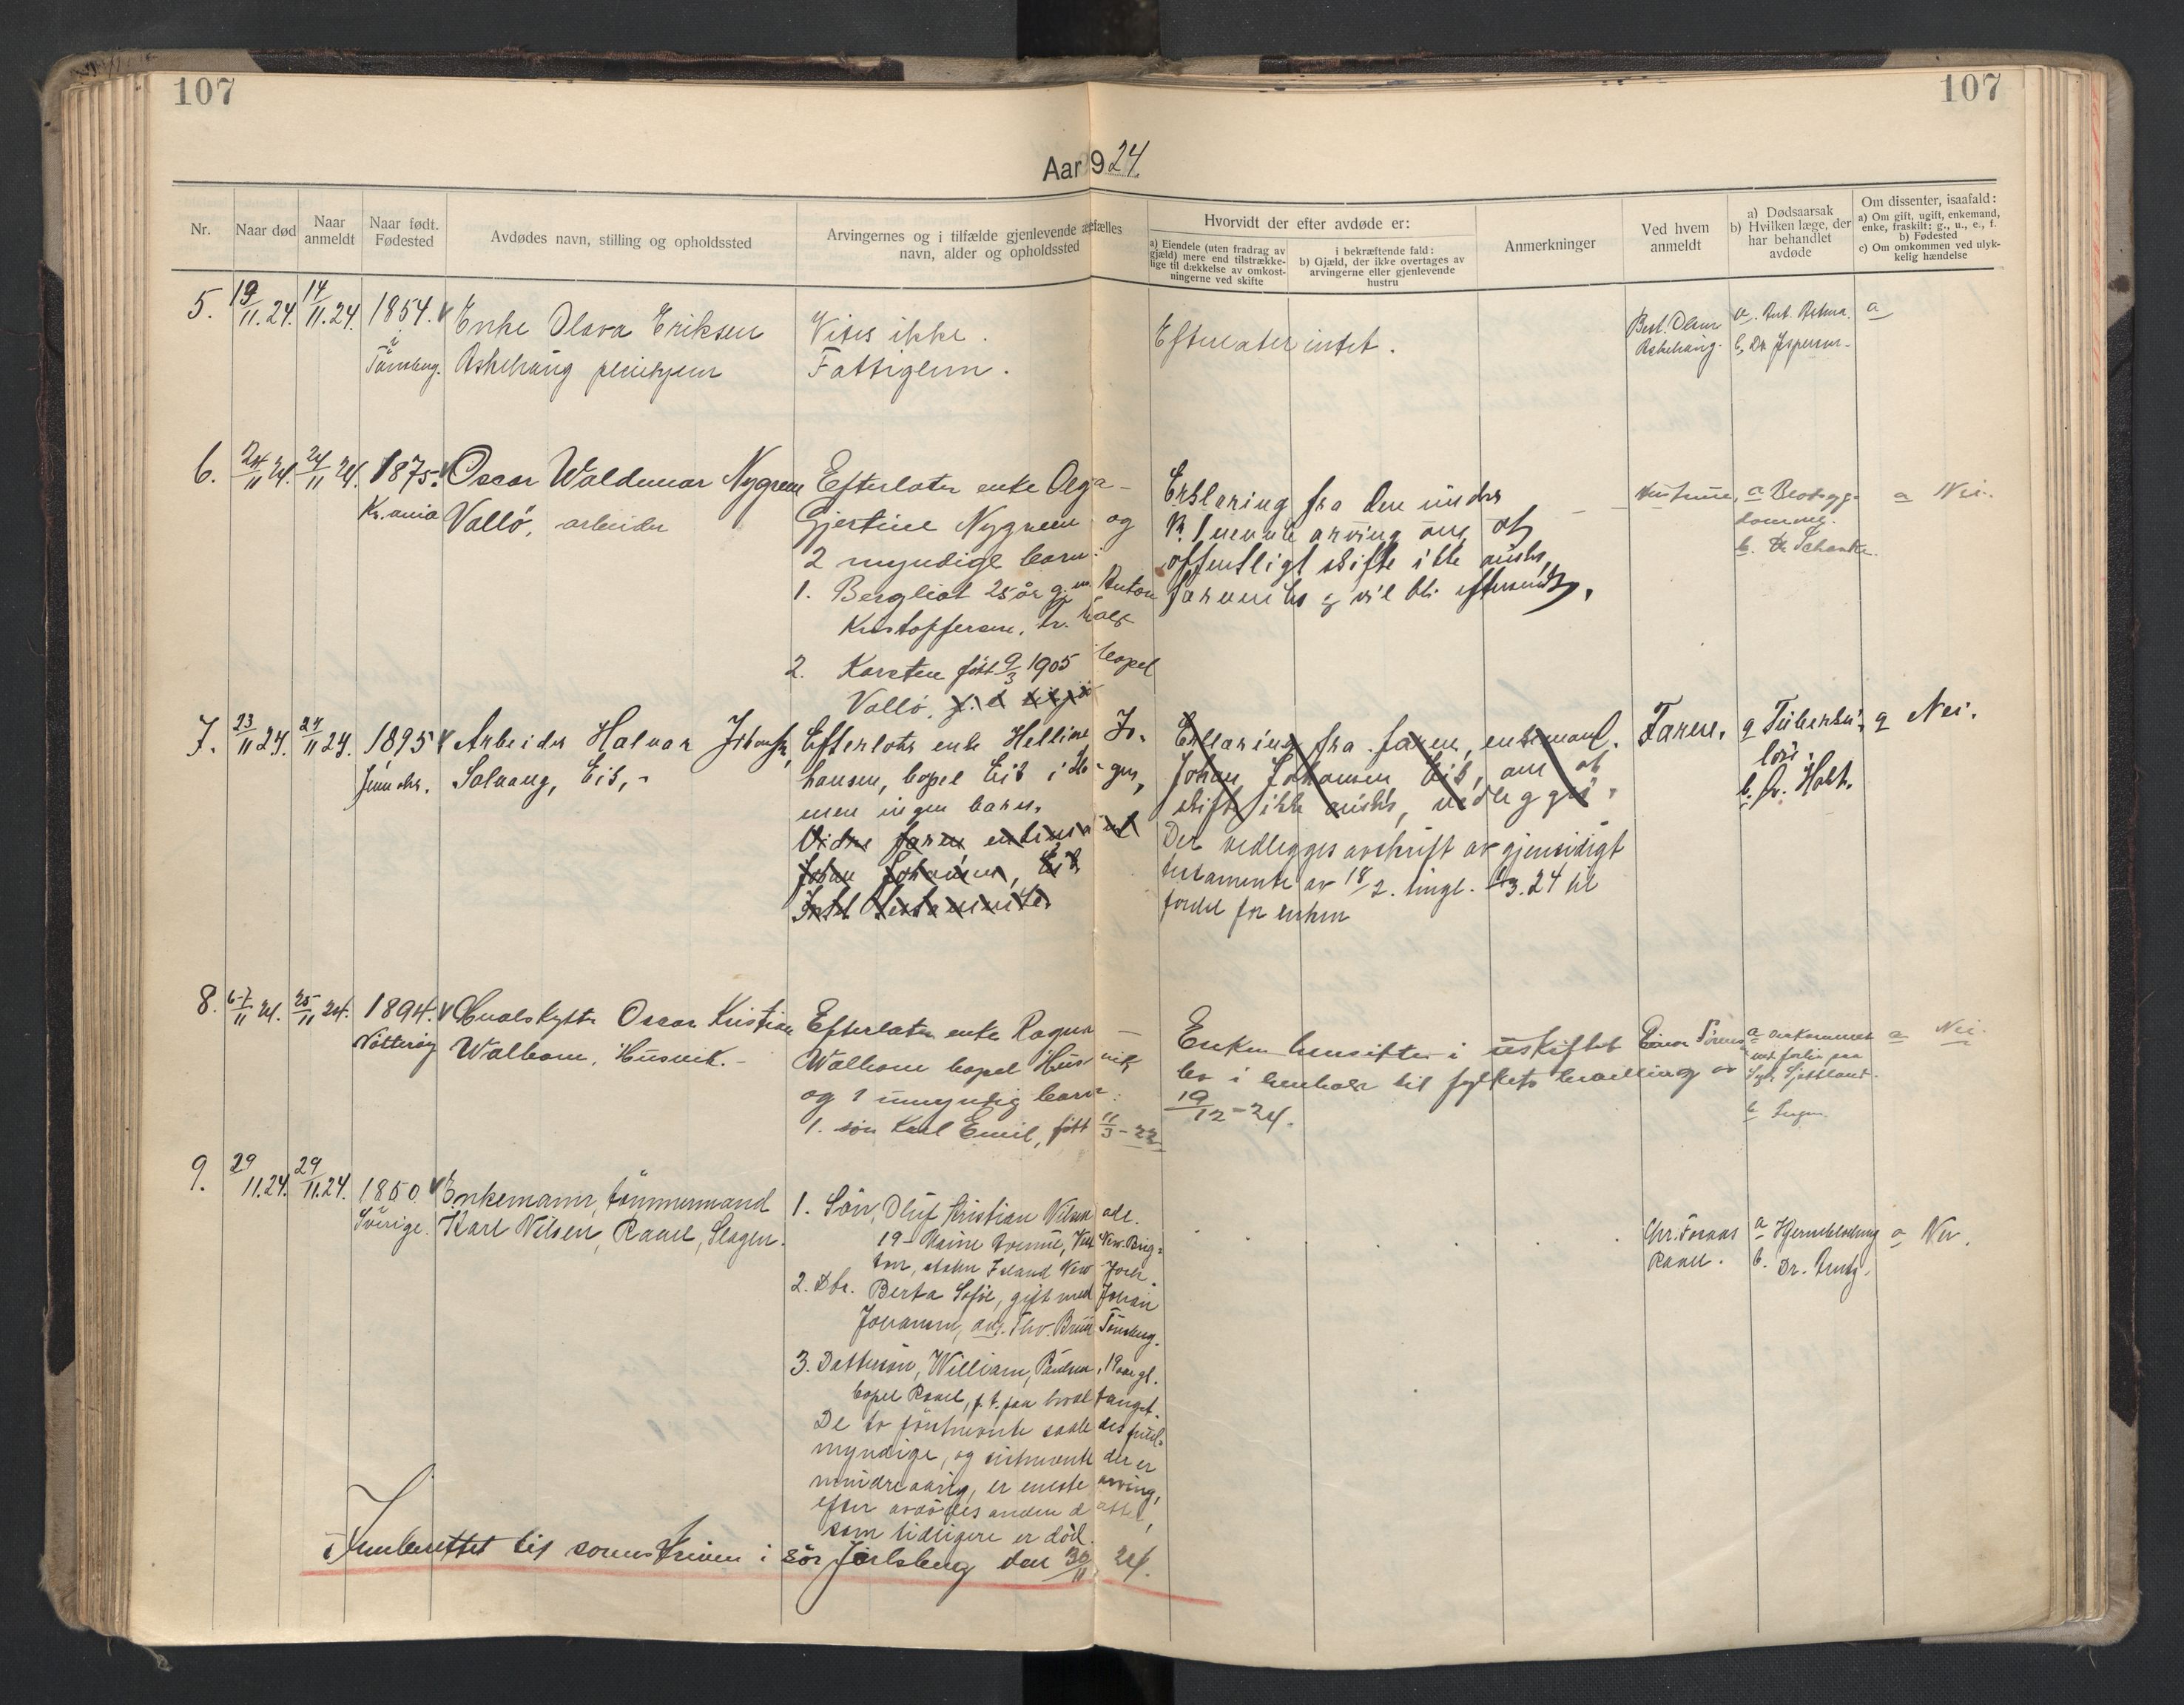 107
107
Aar 1924.
Nr.
Naar død
Naar anmeldt
Naar født. Fødested
Avdødes navn, stilling og opholdssted
Arvingernes og i tilfælde gjenlevende ægtefælles navn, alder og opholdssted
Hvorvidt der efter avdøde er:
a) Eiendele (uten fradrag av gjæld) mere end tilstrækkelige til dækkelse av omkostningerne ved skifte
i bekræftende fald:
b) Gjæld, der ikke overtages av arvingerne eller gjenlevende hustru
Anmerkninger
Ved hvem anmeldt
a) Dødsaarsak
b) Hvilken læge, der har behandlet avdøde
Om dissenter, isaafald:
a) Om gift, ugift, enkemand, enke, fraskilt: g., u., e., f.
b) Fødested
c) Om omkommen ved ulykkelig hændelse
5. 19/11.24. 14/11.24. 1854. Enke Olava Eriksen
i Tønsberg. Askehaug pleiehjem
Vites ikke.
Fattiglem.
Efterlater intet.
Best. Olsen
Askehaug.
b. Dr. Jespersen
a
6. 24/11 24. 24/11 24. 1875. Oscar Waldemar Nygreen
Kr.ania Vallö, arbeider
Efterlater enke Olga
Gjertine Nygreen og
2 myndige barn:
1. Bergliot 25 år g. m. Anton
Kristoffersen, Tr.
2. Karsten født 9/3 1905 bopel
Vallö.
Erklæring fra den
arving om at
offentligt skifte ikke ønskes,
og vil bli eftersendt.
Hustruen,
a
b. Dr Schanke.
a Nei.
7. 23/11 24. 24/11 24. 1895 Arbeider Halvar Johansen,
Solvang, Eik,
Efterlater enke Helline Jo-
hansen, bopel Eik i Slagen,
men ingen barn.
Vidre faren enkemand
Johan Johansen, Eik
Intet testamente.
Erklæring fra faren, enkemand.
Johan Johansen Eik, om at
skifte ikke ønskes, vedlegges.
Der vedlegges avskrift av gjensidigt
testamente av 18/2. tingl. 3.24 til
fordel for enken
Faren.
a Tuberku-
lose.
b. Dr. Holt.
a Nei.
8. 6-7/11 24. 25/11 24. 1894. Hvalskytter Oscar Kristian
Nötteröy Wølhom, Husvik.
Efterlater enke Ragna
bopel Husvik
og 1 umyndig barn:
1. søn Karl Emil, født 11/3-22
Enken hensitter i uskiftet
bo i henhold til fylkets bevilling av
19/12-24.
a omkommet
ved forlis paa
Syd Sjetland.
b Ingen.
a Nei.
9. 29/11.24. 29/11.24. 1850 Enkemann, tömmermand
Sverige. Karl Nilsen, Raael, Slagen.
1. Sön, Oluf Kristian Nilsen adr.
19- Avenue, West New Brig-
ton, Staten Island New York.
2. Dtr. Berta Sofie, gift med Johan
Johansen, adr. Thv. Bruun Tönsberg.
3. Dattersön, William Paulsen, 19 aar gl.
bopel Raael, f. t. paa hvalfangst.
De to förstnevnte saaledes fuld-
myndige, og sistnevnte der er
mindreaarig, er eneste arving,
efter avdødes anden datter,
som tidligere er död.
Chr. Foraas
Raael.
a Hjerneblödning
b. Dr. Arntz.
a Nei.
Indberettet til sorenskriven i Sör Jarlsberg den 30/11 24.